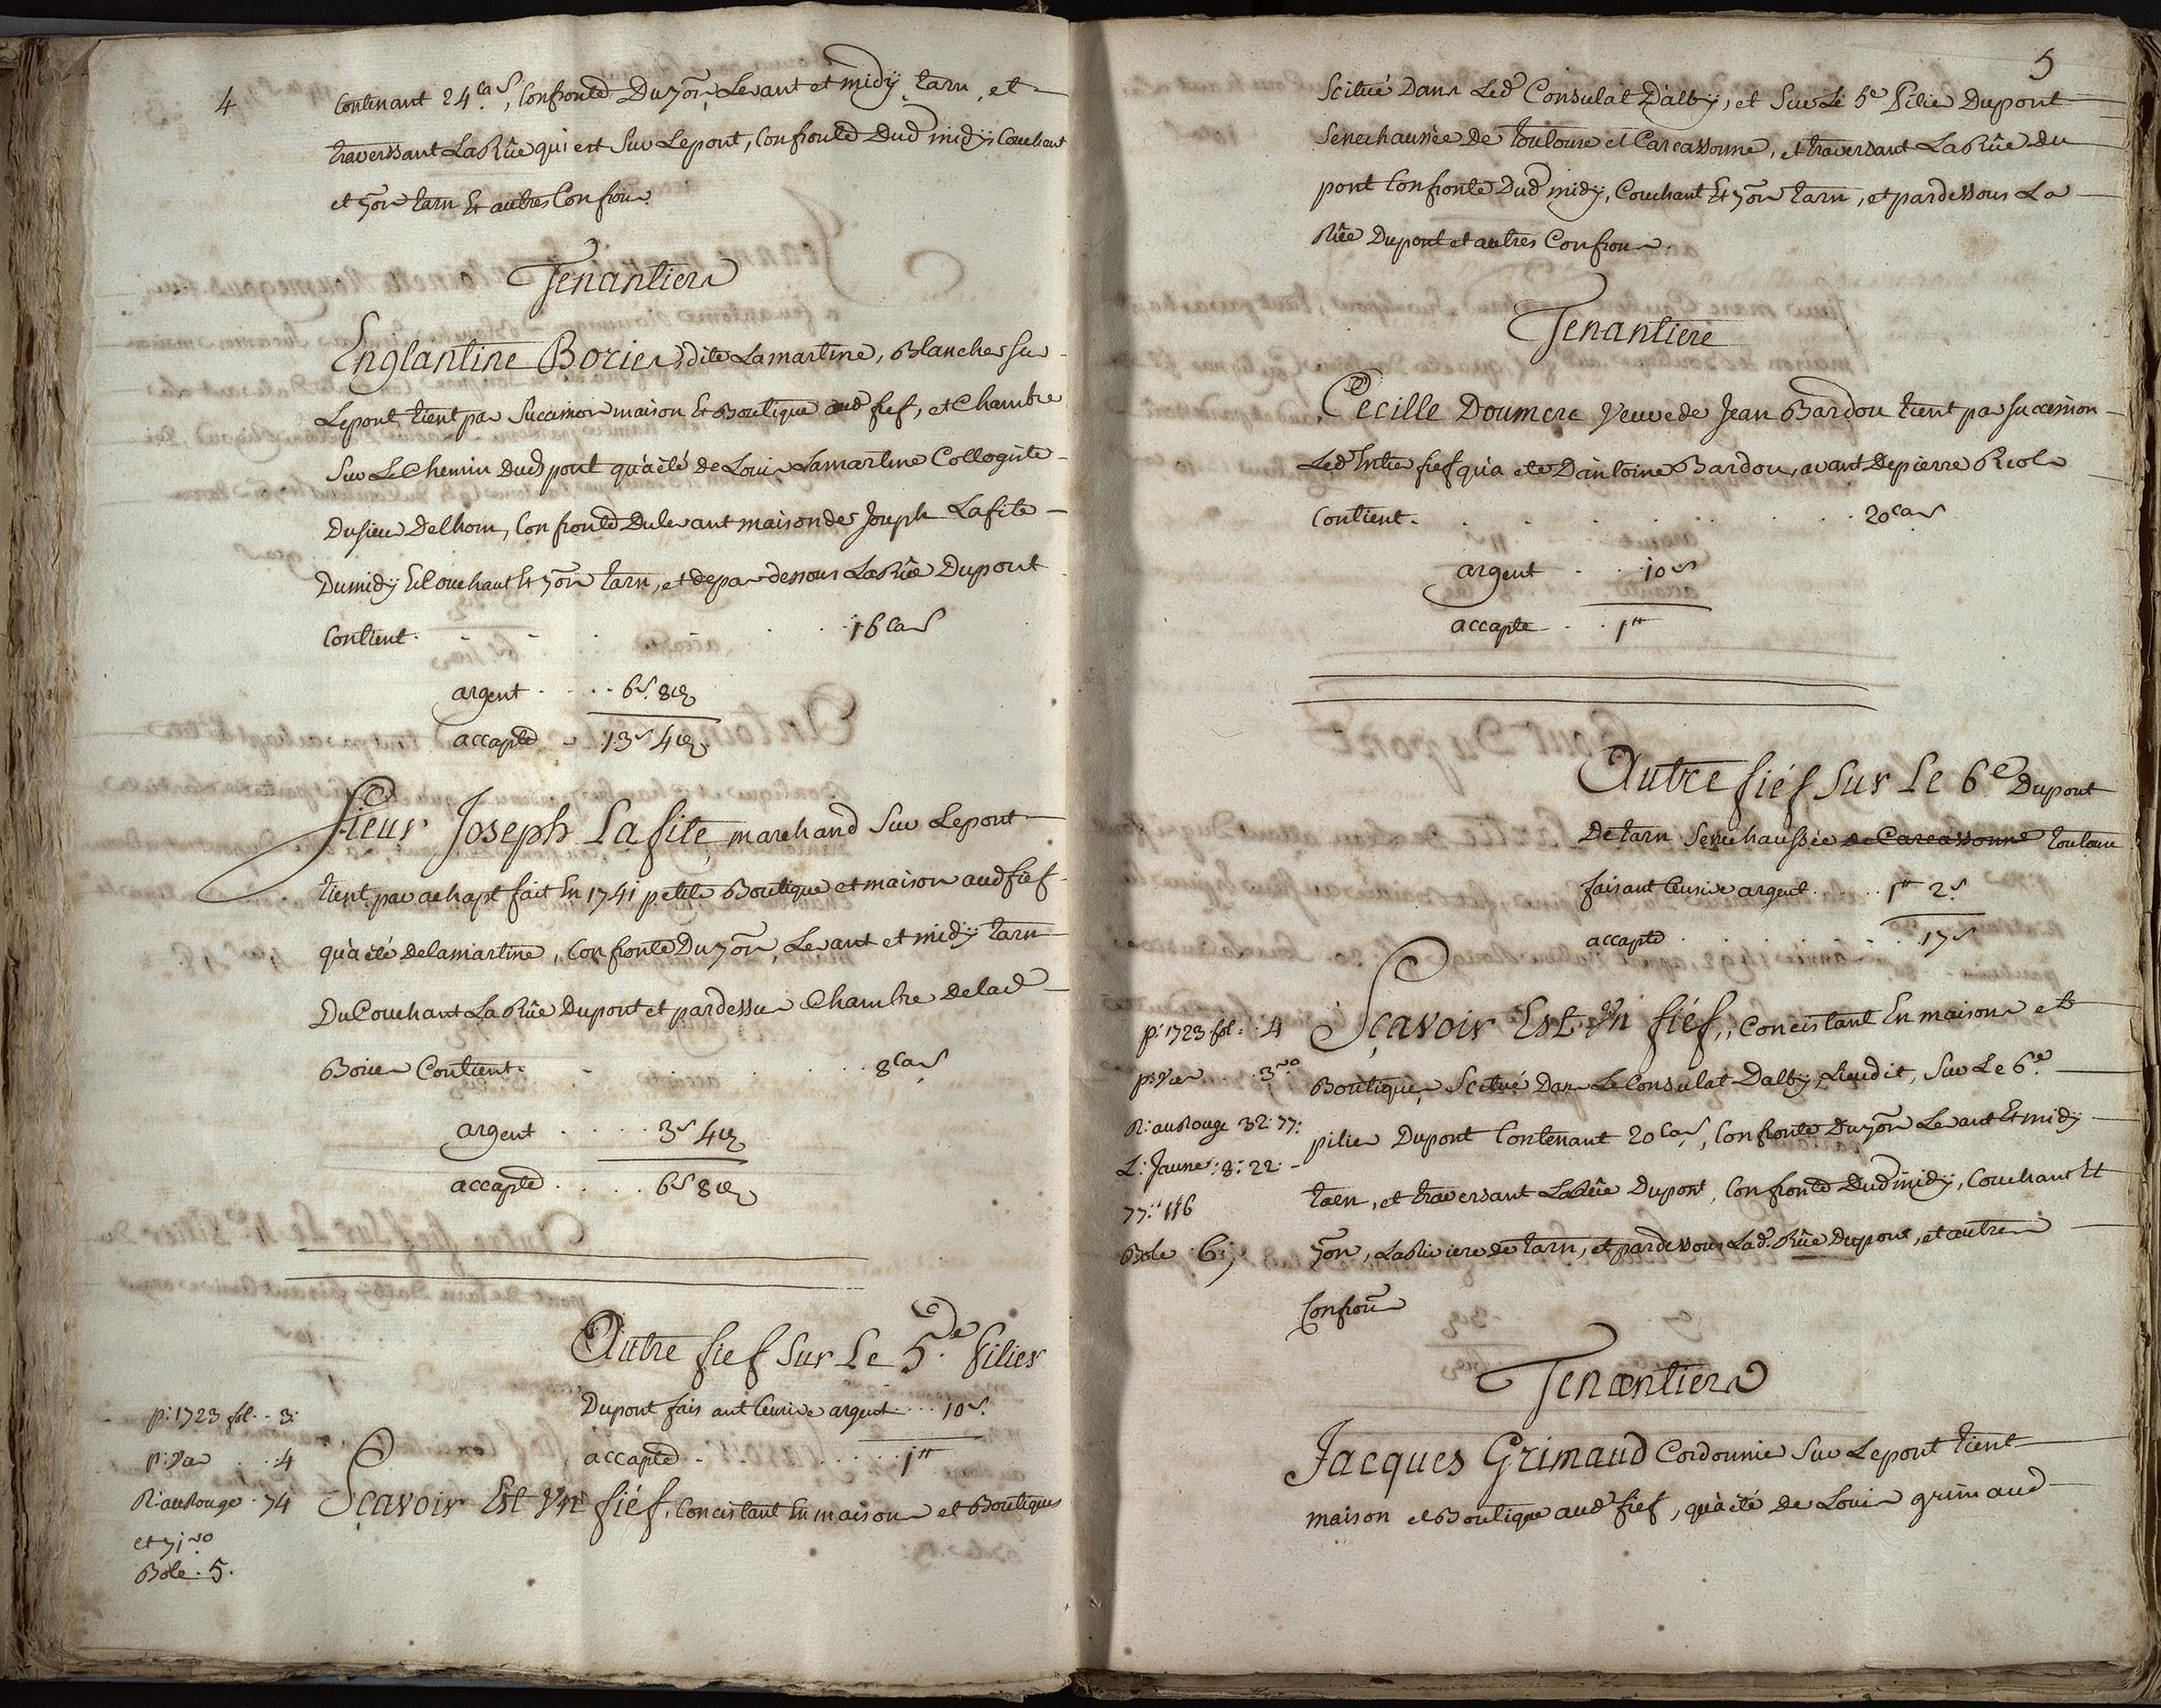 4
Contenant 24 cas, Confronte Du 7on, Levant et midy tarn, et
traverssant La Rüe qui est Sur Lepont, Confronte Dud midy, Couchant
et 7on tarn Et autres Confron.
Tenantiers
Englantine Bories, dite Lamartine, Blancher Sur
Lepont tient par Succession maison Et Boutique aud fief, et Chambre
Sur Le Chemin dud pont qu'a été de Louis Lamartine Collogiste
Du sieur Delhom, Confronte Du levant maison de Joseph Lafite
Du midy Et Couchant Et 7on tarn, et depar dessous La Rüe Dupont
Contient 16 cas
argent 6s. 8d
accapte 13s 4d
Sieur Joseph Lafite marchand Sur Lepont
tient par achapt fait En 1741 petite Boutique et maison aud fief
qu'a été de lamartine, Confronte Du 7on, Levant et midy tarn
Du Couchant La Rüe Dupont et pardessus Chambre de lad
Bories Contient 8 cas
argent 3s 4d
accapte 6s 8d
Autre fief Sur Le 5e pilier
Dupont fais ant Censive argent 10s.
accapte 1tt
p: 1723 fol. 3:
p: 4
R: au Rouge 74
et 71 vo
Bole. 5.
Sçavoir Est Un fief, Concistant En maisons et Boutiques
5
Scitué Dans Led Consulat D'alby, et Sur Le 5e pilier Dupont
Senechaussée de toulouse et Carcassonne, et traversant La Rüe du
pont Confronte Dud midy, Couchant Et 7on tarn, et pardessous La
Rüe Dupont et autres Confron.
Tenantiere
Cecille Doumere Veuve de Jean Bardou tient par succession
Led Entier fief qu'a ete D'antoine Bardou, avant De pierre Riols
Contient 20 cas
argent 10s
accapte 1tt
Autre fiéf Sur Le 6e Dupont
De tarn Senechaussée de Carcassonne toulouse
faisant Censive argent 1tt 2s
accapte 17s
p: 1723 fol: 4
p: 3 vo
R: au Rouge 32: 77:
L: Jaune: 8: 22:
77: 116
Bole 6:
Sçavoir Est Un fiéf, Concistant En maisons et
Boutiques Scitué Dans Le Consulat Dalby, Lieudit, Sur Le 6e
pilier Dupont Contenant 20 cas, Confronte Du 7on Levant Et midy
tarn, et traversant La Rüe Dupont, Confronte Dud midy, Couchant Et
7on, La Riviere de tarn, et pardessous Lad. Rüe Dupont, et autres
Confron
Tenantiers
Jacques Grimaud Cordonnier Sur Lepont tient
maison et Boutique aud fief, qu'a été de Louis grimaud